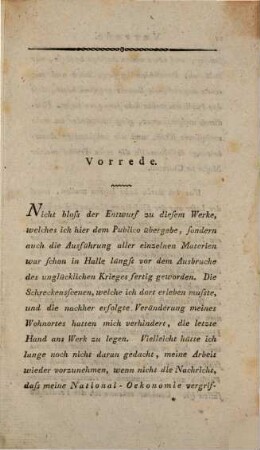 Vorrede.
Nicht bloſs der Entwurf zu dieſem Werke,
welches ich hier dem Publico übergebe, ſondern
auch die Ausführung aller einzelnen Materien
war ſchon in Halle längſt vor dem Ausbruche
des unglücklichen Krieges fertig geworden. Die
Schreckensſcenen, welche ich dort erleben muſste,
und die nachher erfolgte Veränderung meines
Wohnortes hatten mich verhindert, die letzte
Hand ans Werk zu legen. Vielleicht hätte ich
lange noch nicht daran gedacht, meine Arbeit
wieder vorzunehmen, wenn nicht die Nachricht,
daſs meine National-Oekonomie vergriſ-